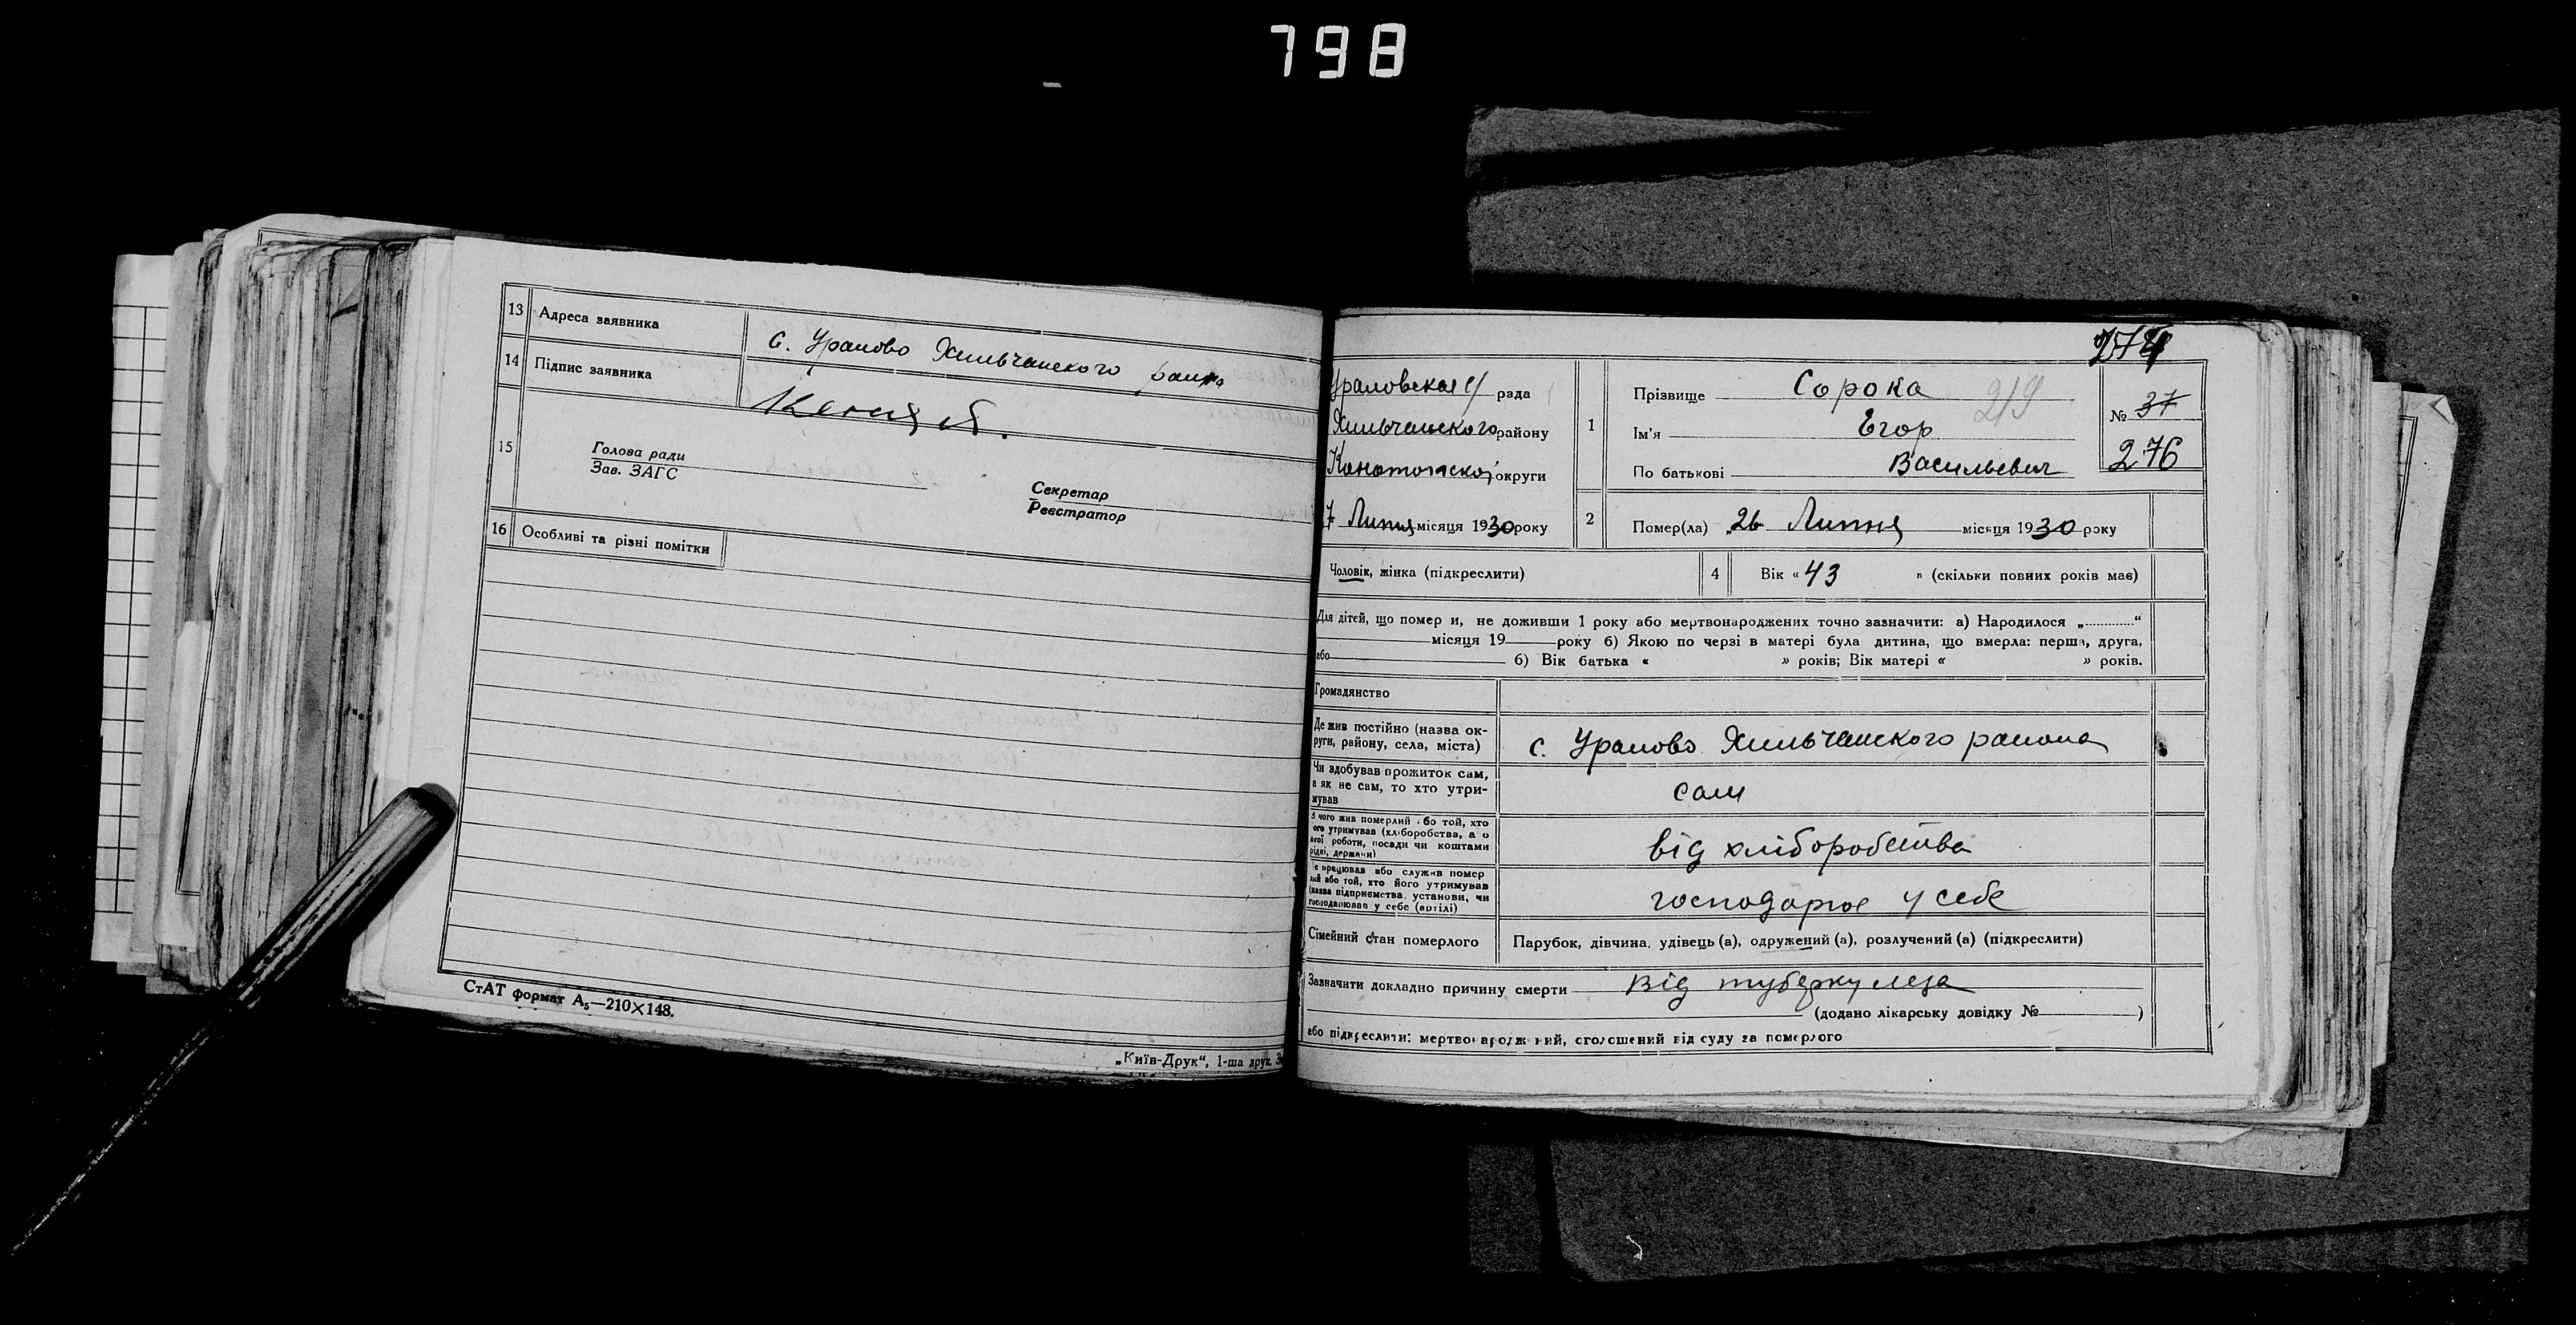 798
13 Адреса заявника с. Уралово Хильчанского раина
14 Підпис заявника
15
Голова ради
Зав. ЗАГС
Секретар
Реєстратор
16 Особливі та різні помітки
СтАТ формат А₅—210×148.
„Київ-Друк“, 1-ша друк.
274
Ураловская с/ рада
Хильчанского району
округи
7 Липня місяця 1930 року
1
Прізвище Сорока
219
Ім'я Егор
По батькові Васильевич
№ 37
276
2
Помер(ла) „26 Липня місяця 1930 року
Чоловік, жінка (підкреслити)
4 Вік « 43 » (скільки повних років має)
Для дітей, що помер и, не доживши 1 року або мертвонароджених точно зазначити: а) Народилося „............“
місяця 19 року б) Якою по черзі в матері була дитина, що вмерла: перша, друга,
або б) Вік батька « » років; Вік матері « » років.
Громадянство
Де жив постійно (назва ок-
руги, району, села, міста) с. Уралово Хильчанского раиона
Чи здобував прожиток сам,
а як не сам, то хто утри-
мував сам
З чого жив померлий або той, хто
його утримував (хліборобства, а о
якої роботи, посади чи коштами
рідні, держави) від хліборобства
Де працював або служив помер
лий або той, хто його утримував
(назва підприємства, установи, чи
господарював у себе (артілі) господарює у себе
Сімейний стан померлого Парубок, дівчина, удівець (а), одружений (а), розлучений (а) (підкреслити)
Зазначити докладно причину смерти від туберкулеза
(додано лікарську довідку № )
або підкреслити: мертвонароджений, оголошений від суду за померлого